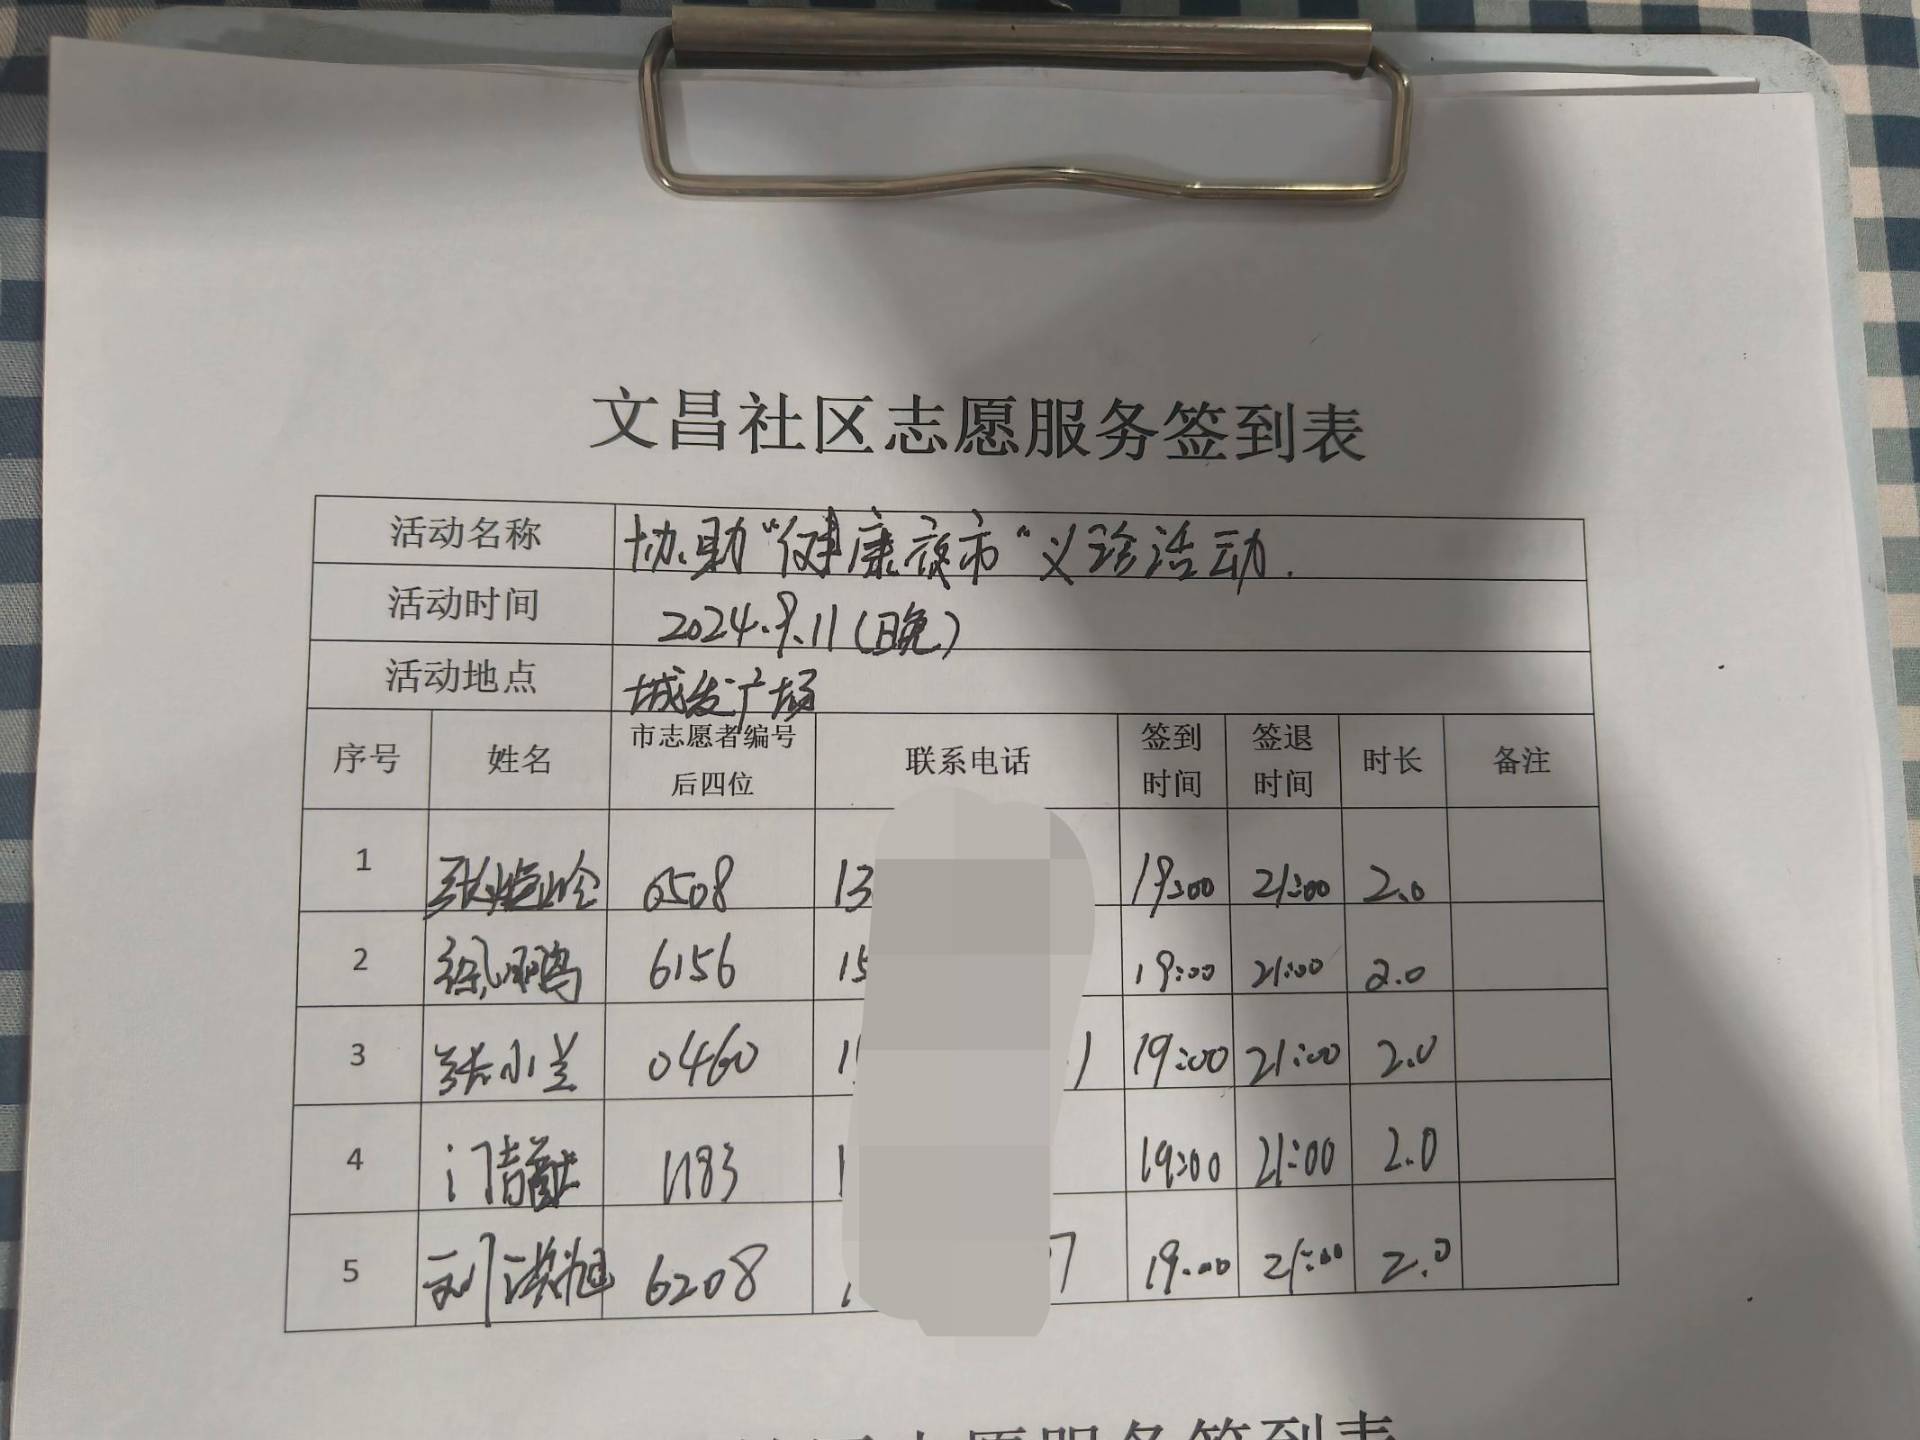 文昌社区志愿服务签到表
活动名称 协助“健康夜市“义诊活动.
活动时间 2024.9.11(晚)
活动地点 城发广场
序号 姓名 市志愿者编号后四位 联系电话 签到时间 签退时间 时长 备注
1 0508 13 19:00 21:00 2.0
2 6156 15 19:00 21:00 2.0
3 张小兰 0460 1 1 19:00 21:00 2.0
4 1183 1 19:00 21:00 2.0
5 6208 1 7 19:00 21:00 2.0
志愿服务签到表